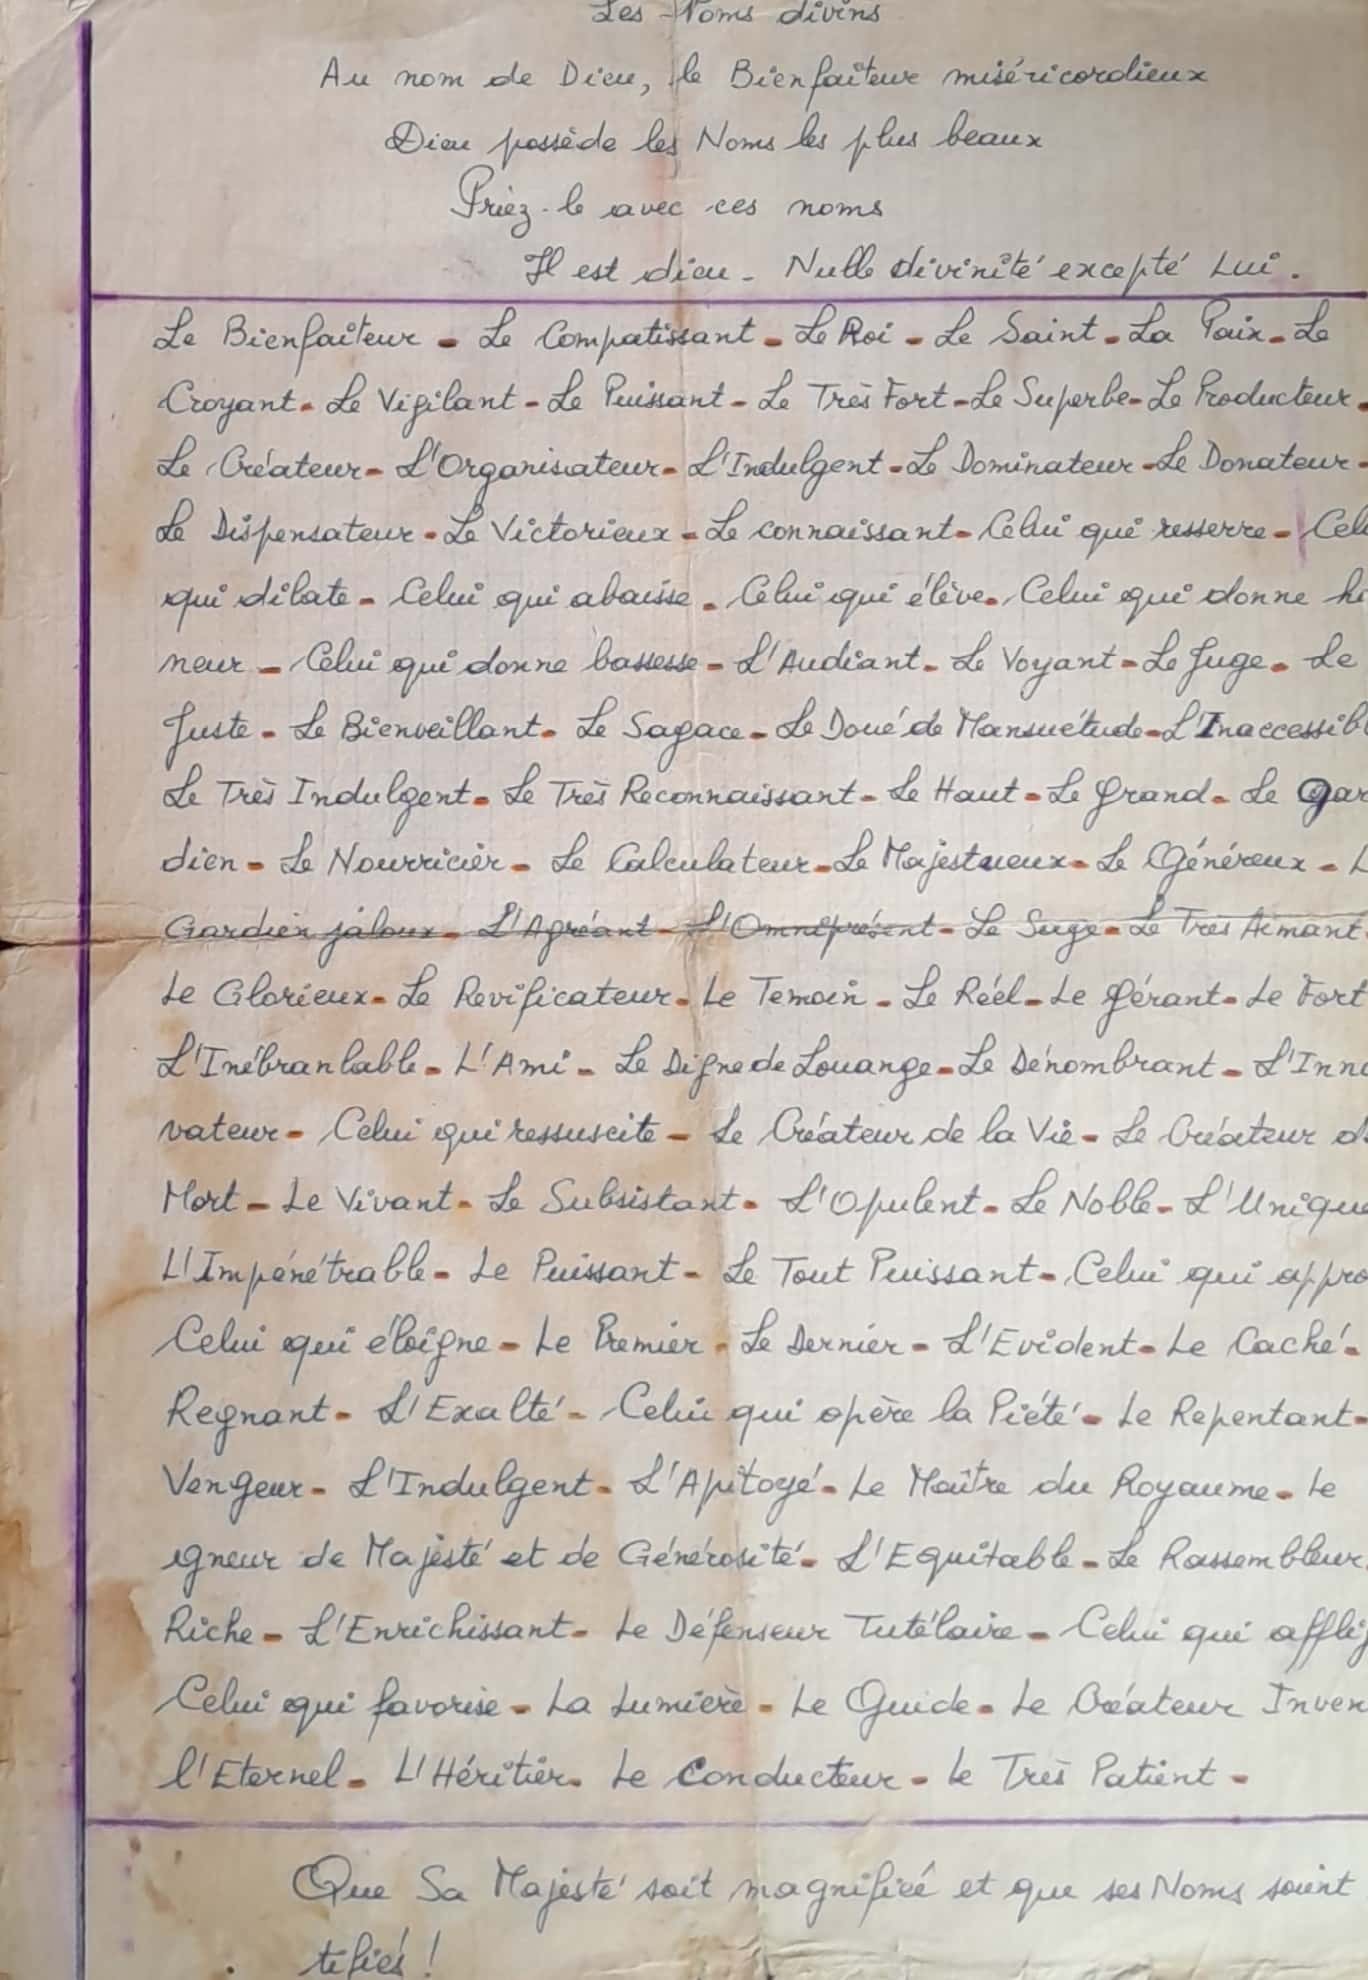 Les Noms divins
Au nom de Dieu, le Bienfaiteur miséricordieux
Dieu possède les Noms les plus beaux
Priez-le avec ces noms
Il est dieu - Nulle divinité excepté Lui.
Le Bienfaiteur - Le Compatissant - Le Roi - Le Saint - La Paix - Le
Croyant - Le Vigilant - Le Puissant - Le Très Fort - Le Superbe - Le Producteur -
Le Créateur - L'Organisateur - L'Indulgent - Le Dominateur - Le Donateur -
Le Dispensateur - Le Victorieux - Le connaissant - Celui qui resserre - Celu
qui dilate - Celui qui abaisse - Celui qui élève - Celui qui donne ho
neur - Celui qui donne bassesse - L'Audiant - Le Voyant - Le Juge - Le
Juste - Le Bienveillant - Le Sagace - Le Doué de Mansuétude - L'Inaccessibl
Le Très Indulgent - Le Très Reconnaissant - Le Haut - Le Grand - Le Gar
dien - Le Nourricier - Le Calculateur - Le Majestueux - Le Généreux - L
Gardien jaloux - L'Agréant - L'Omniprésent - Le Sage - Le Très Aimant -
Le Glorieux - Le Revificateur - Le Temoin - Le Réel - Le Gérant - Le Fort
L'Inébranlable - L'Ami - Le Digne de Louange - Le Dénombrant - L'Inno
vateur - Celui qui ressuscite - Le Créateur de la Vie - Le Créateur d
Mort - Le Vivant - Le Subsistant - L'Opulent - Le Noble - L'Unique
L'Impénétrable - Le Puissant - Le Tout Puissant - Celui qui appro
Celui qui éloigne - Le Premier - Le Dernier - L'Evident - Le Caché -
Regnant - L'Exalté - Celui qui opère la Piété - Le Repentant -
Vengeur - L'Indulgent - L'Apitoyé - Le Maître du Royaume - Le
igneur de Majesté et de Générosité - L'Equitable - Le Rassembleur
Riche - L'Enrichissant - Le Défenseur Tutélaire - Celui qui afflig
Celui qui favorise - La Lumière - Le Guide - Le Créateur Inven
l'Eternel - L'Héritier - Le Conducteur - Le Très Patient -
Que Sa Majesté soit magnifiée et que ses Noms soient
tifiés !